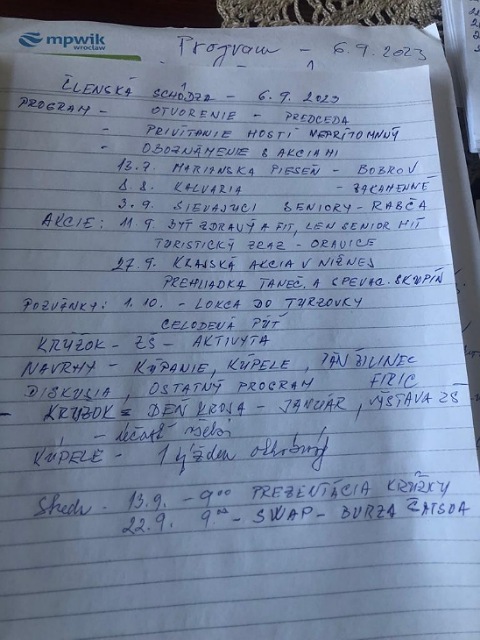 mpwik
wrocław
Program - 6.9.2023
ČLENSKÁ SCHÔDZA - 6.9.2023
PROGRAM - OTVORENIE - PREDCEDA
- PRIVÍTANIE HOSTÍ NEPRÍTOMNÝ
- OBOZNÁMENIE S AKCIAMI
13.7. MARIANSKA PIESEŇ - BOBROV
8.8. KALVARIA - ZAKAMENNÉ
3.9. SIEVAJUCI SENIORY - RABČA
AKCIE: 11.9. BYŤ ZDRAVÝ A FIT, LEN SENIOR HIT
TURISTICKÝ ZRAZ - ORAVICE
27.9. KRAJSKÁ AKCIA V NIŽNEJ
PREHLIADKA TANEČ. A SPEVAC. SKUPÍN
POZVÁNKY: 1.10. - LOKCA DO TURZOVKY
CELODENÁ PÚŤ
KRÚŽOK - ZŠ - AKTIVYTA
NÁVRHY - KÚPANIE, KÚPELE, JÁN ŽILINEC
DISKUSIA, OSTATNÝ PROGRAM FIRIC
- KRÚŽOK = DEŇ KROJA - JANUÁR, VÝSTAVA ZŠ
KÚPELE - 1 týžden
Streda - 13.9. - 9⁰⁰ PREZENTÁCIA KRÚŽKY
22.9. 9⁰⁰ - SWAP - BURZA